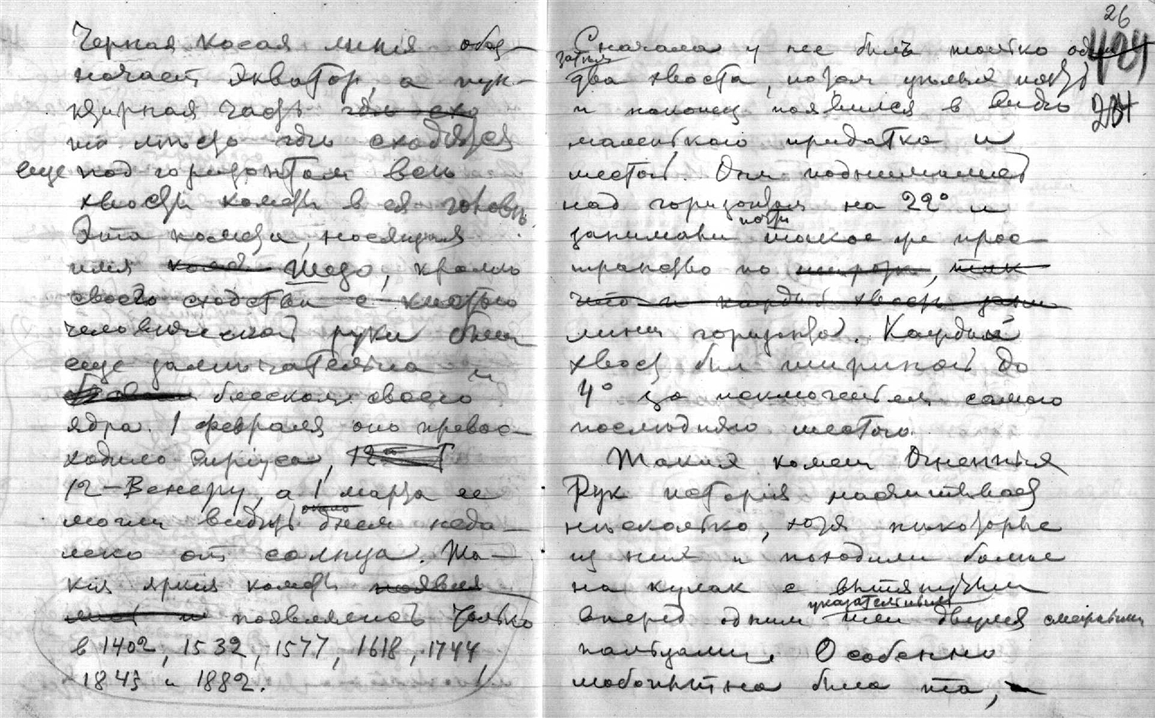 Черная косая линия обоз-
начает экватор, а пун-
ктирная часть где схо
то место где сходятся
еще под горизонтом все
хвосты кометы в ея голове.
Эта комета, носящая
имя коме Шезо, кроме
своего сходства с кистью
человеческой руки была
еще замечательна и
блеском своего
ядра. 1 февраля оно превос-
ходило Сириуса, 12
12 – Венеру, а 1 марта ее
могли видеть около днем неда-
леко от солнца. Та-
кия яркия кометы появля
появлялись только
в 1402, 1532, 1577, 1618, 1744
1843 и 1882.
26
Сначала у нее был только один
404
затем
два хвоста, потом
234
и наконец появился в виде
маленького придатка и
шестой. Они поднимались
над горизонтом на 22° и
занимали почти такое же прос-
транство по широте, так
что и каждый хвост зани
линии горизонта. Каждый
хвост был шириной до
4° за исключением самого
последняго шестого.
Таких комет Огненных
Рук история насчитывает
несколько, хотя некоторые
из них и походили более
на кулак с вытянутыми
вперед одним или двумя смотревшими
указательными
пальцами. Особенно
любопытна была та,